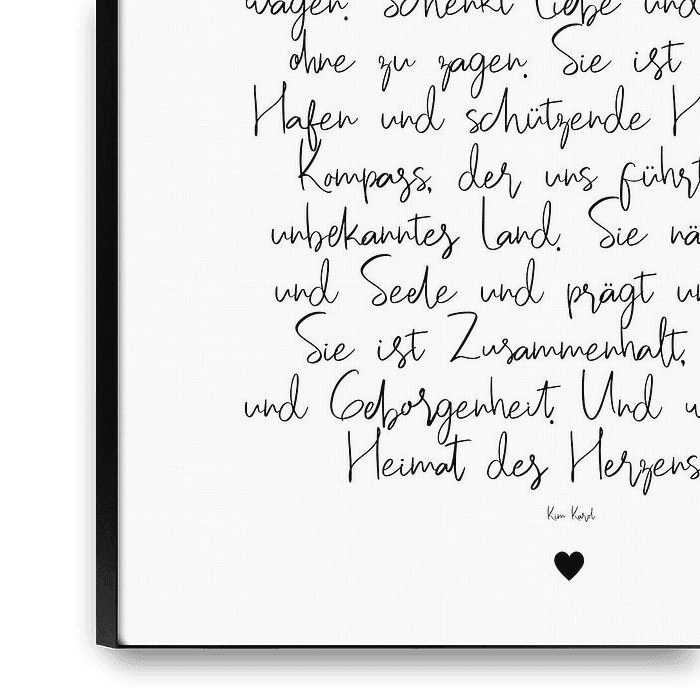 wagen. Schenkt Liebe und
ohne zu zagen. Sie ist
Hafen und schützende H
Kompass, der uns führt
unbekanntes Land. Sie nä
und Seele und prägt un
Sie ist Zusammenhalt,
und Geborgenheit. Und u
Heimat des Herzens
Kim Karol